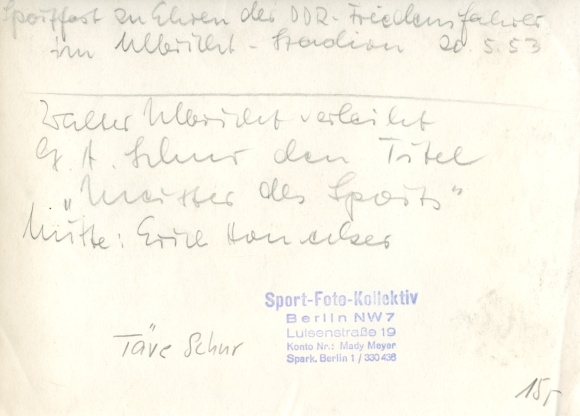 Sportfest zu Ehren der DDR-Friedensfahrer
im Ulbricht-Stadion 20.5.53
Walter Ulbricht verleiht
G. A. Schur den Titel
„Meister des Sports“
Mitte: Erich Honecker
Sport-Foto-Kollektiv
Berlin NW 7
Luisenstraße 19
Konto Nr.: Mady Meyer
Spark. Berlin 1 / 330 436
Täve Schur
15,-